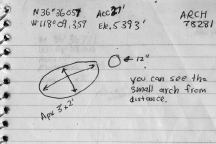 N36°36057 Acc 27' ARCH
W118°09.357 Ele. 5393' 78281
← 12"
you can see the
small arch from
distance.
Apx 3'x2'